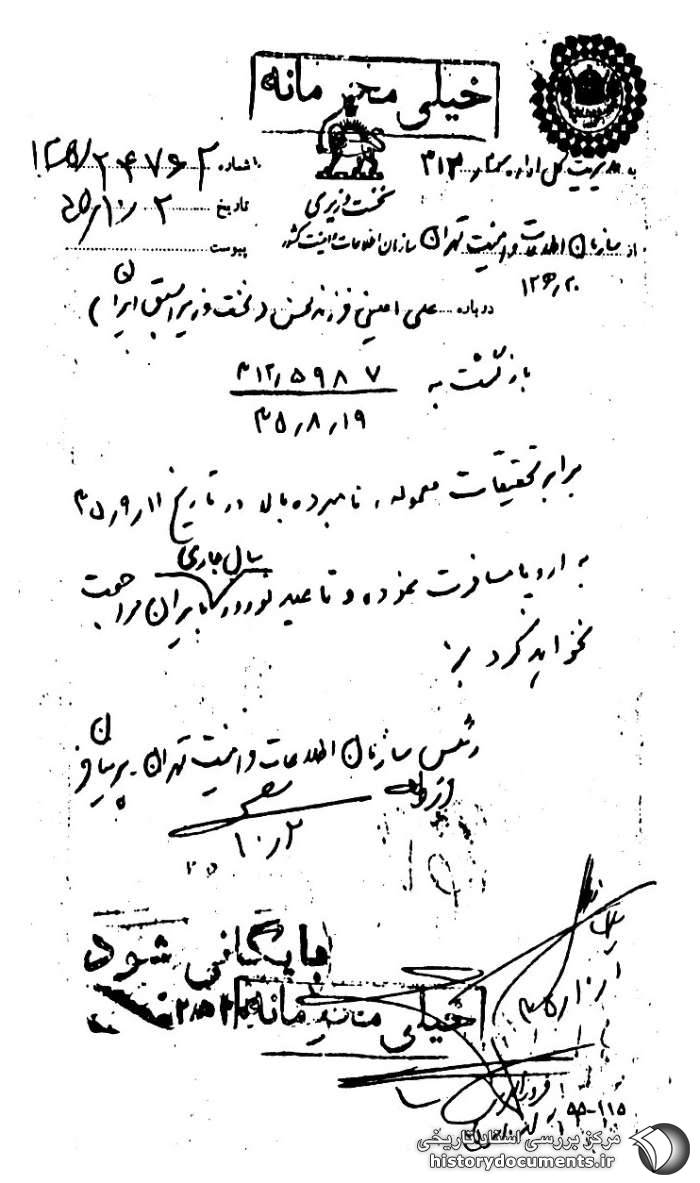 خیلی محرمانه
به مدیریت کل اداره سوم ۳۱۲
شماره
تاریخ ۳۵/۱۰/۲
نخست وزیری
سازمان اطلاعات و امنیت کشور
از سازمان اطلاعات و امنیت تهران
پیوست
۲۰/۱۲۶
درباره علی امینی فرزند محسن (نخست وزیر اسبق ایران)
بازگشت به ۳۱۲/۵۹۸۷
۳۵/۸/۱۹
برابر تحقیقات معموله، نامبرده بالا در تاریخ ۳۵/۹/۱۱
به اروپا مسافرت نموده و تا عید نوروز سال جاری بایران مراجعت
نخواهد کرد
رئیس سازمان اطلاعات و امنیت تهران - پرنیان فر
۱۰/۲
بایگانی شود
خیلی محرمانه
۳۵/۱۰/
۵۵-۱۱۵
مرکز بررسی اسناد تاریخی
historydocuments.ir